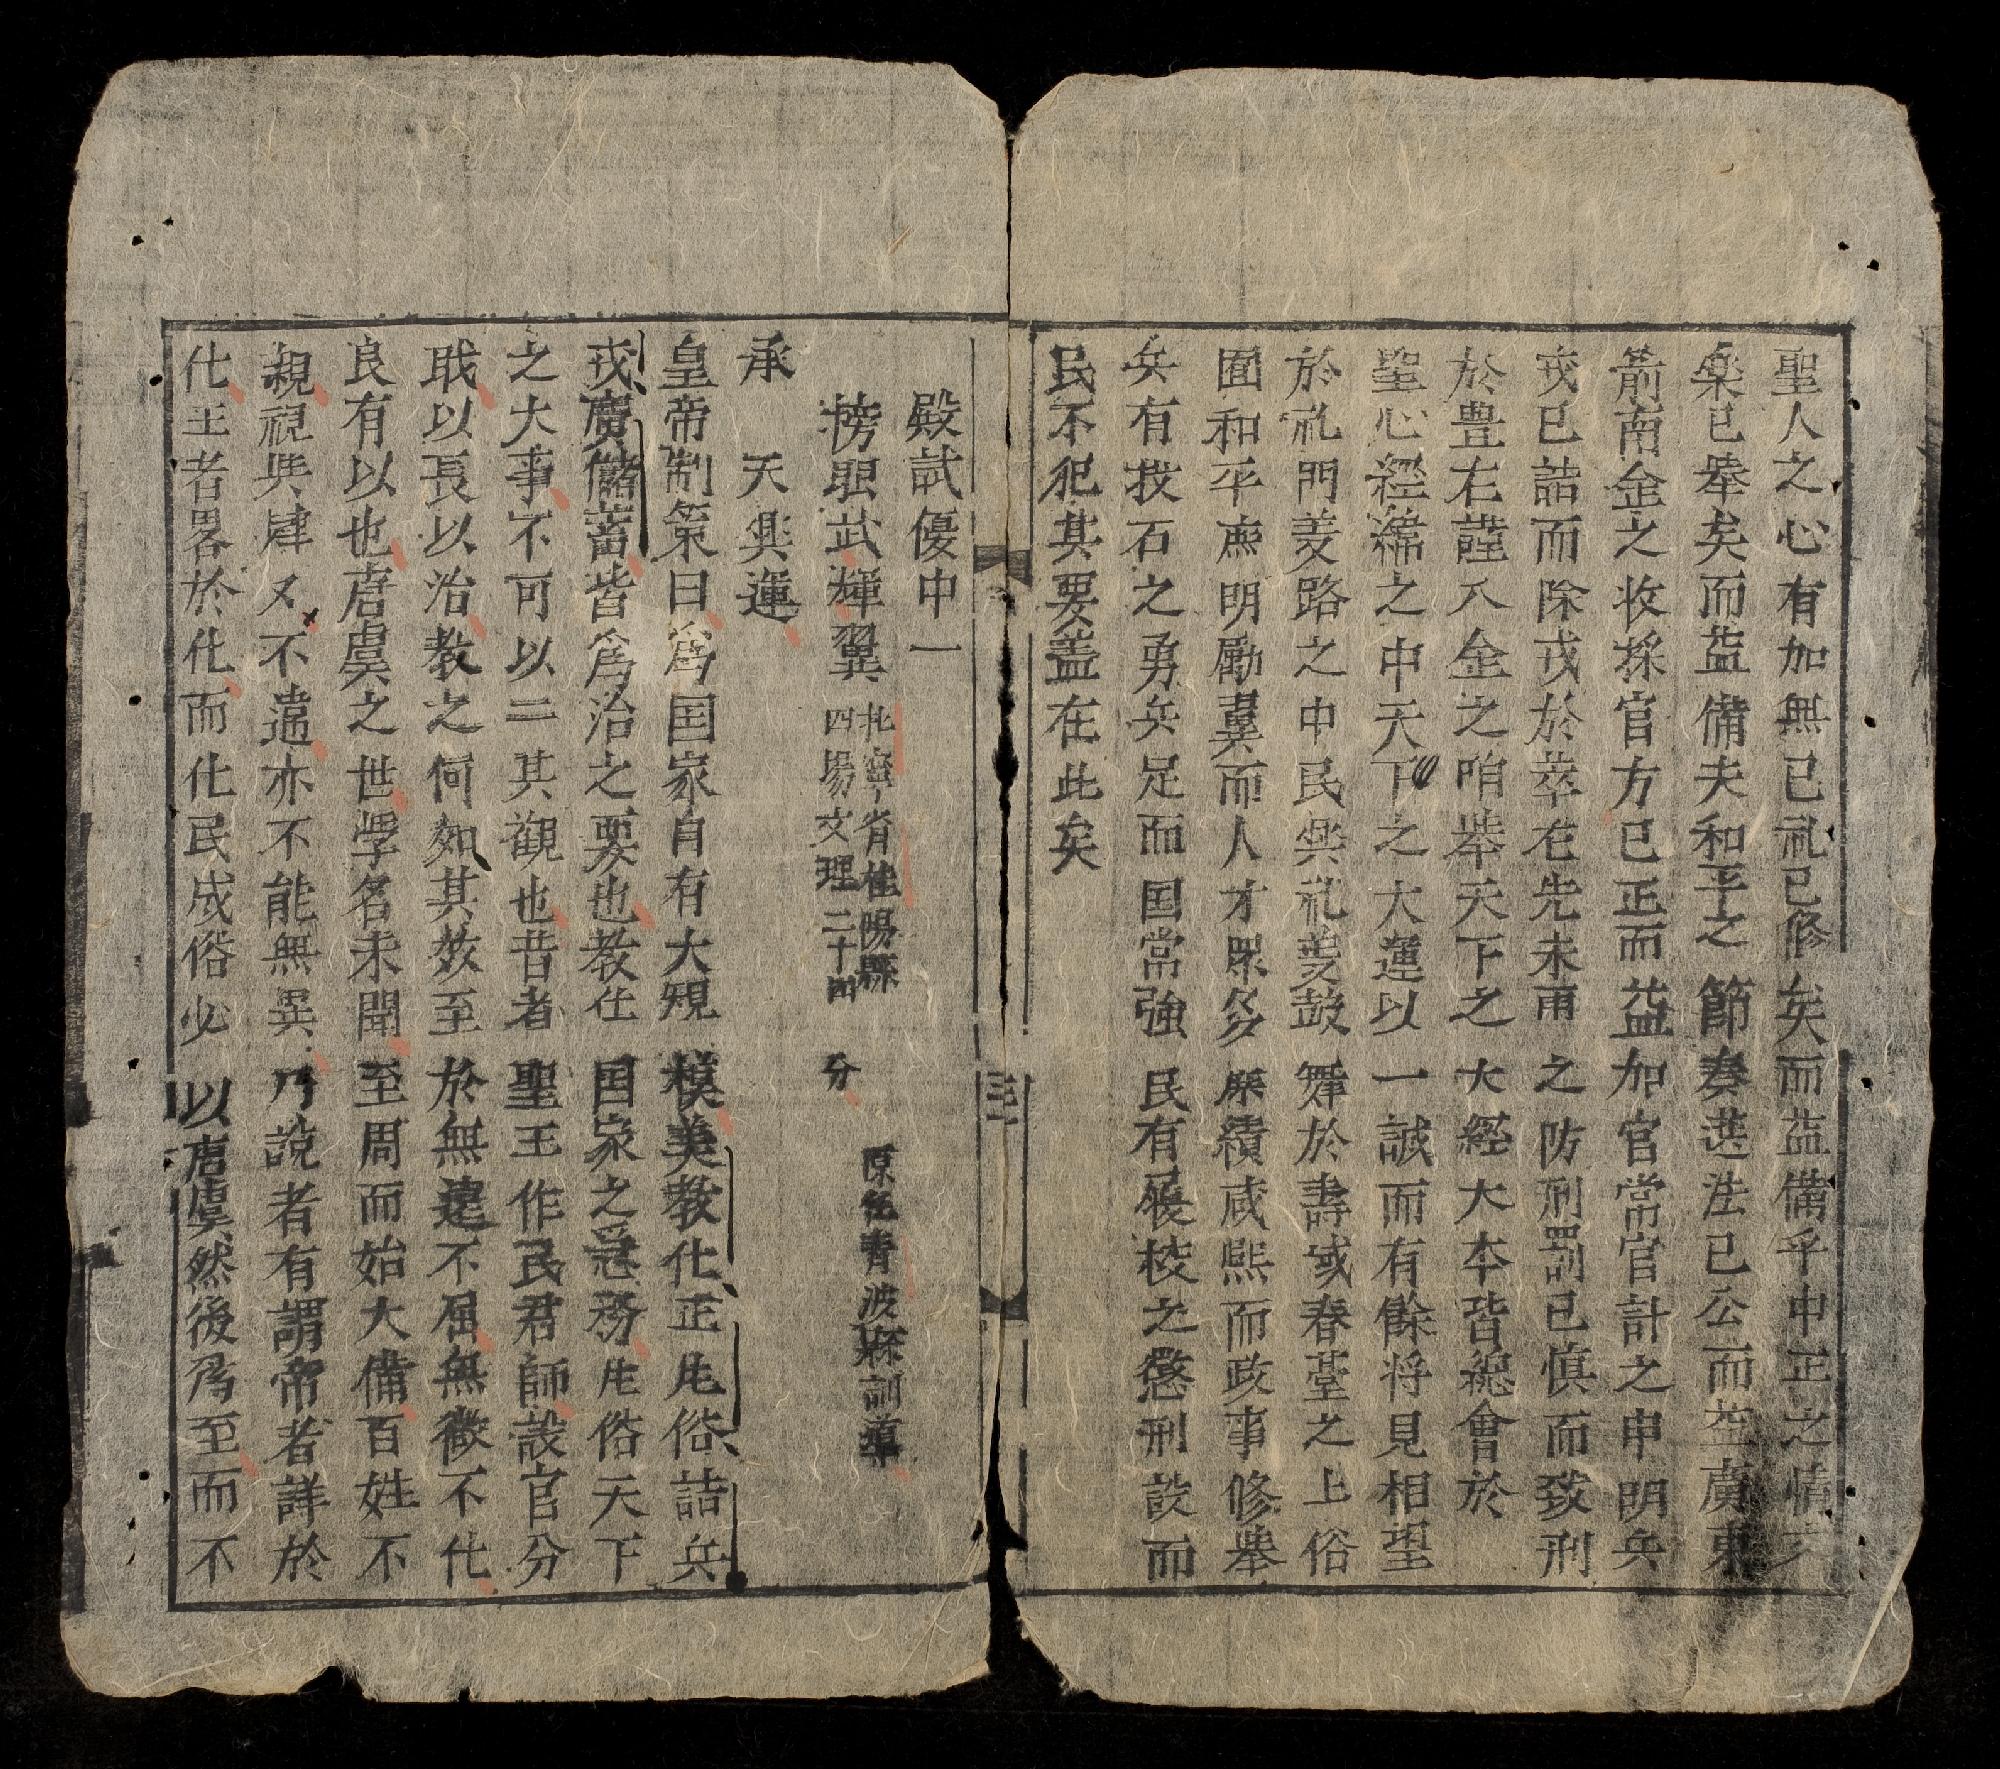 聖人之心有加無已礼已修矣而益備乎中正之情文
楽已举矣而益備夫和平之節奏選法已公而益廣東
箭南金之收採官方已正而益加官常官計之申明兵
戎已詰而除戎於萃在先未雨之防刑罰已慎而致刑
於豊右謹入金之咱举天下之大經大本皆總會於
聖心經綸之中天下之大運以一誠而有餘将見相望
於礼門义路之中民興礼義鼓舞於壽域春臺之上俗
囿和平庶明勵翼而人才眾多庶績咸熙而政事修举
兵有投石之勇兵足而国常強民有屐校之懲刑設而
民不犯其要盖在此矣
三
殿試優中一
榜眼武輝翼
北寧省桂陽縣
四場文理二十四分
原領青波縣訓導
承 天興運
皇帝制策曰為国家自有大規模美教化正風俗詰兵
戎廣儲蓄皆為治之要也教化国家之急務风俗天下
之大事不可以二其觀也昔者聖王作民君師設官分
职以長以治教之何如其效至於無遠不届無微不化
良有以也唐虞之世學名未聞至周而始大備百姓不
親視典肄又不遑亦不能無異乃說者有謂帝者詳於
化王者畧於化而化民成俗必以唐虞然後為至而不